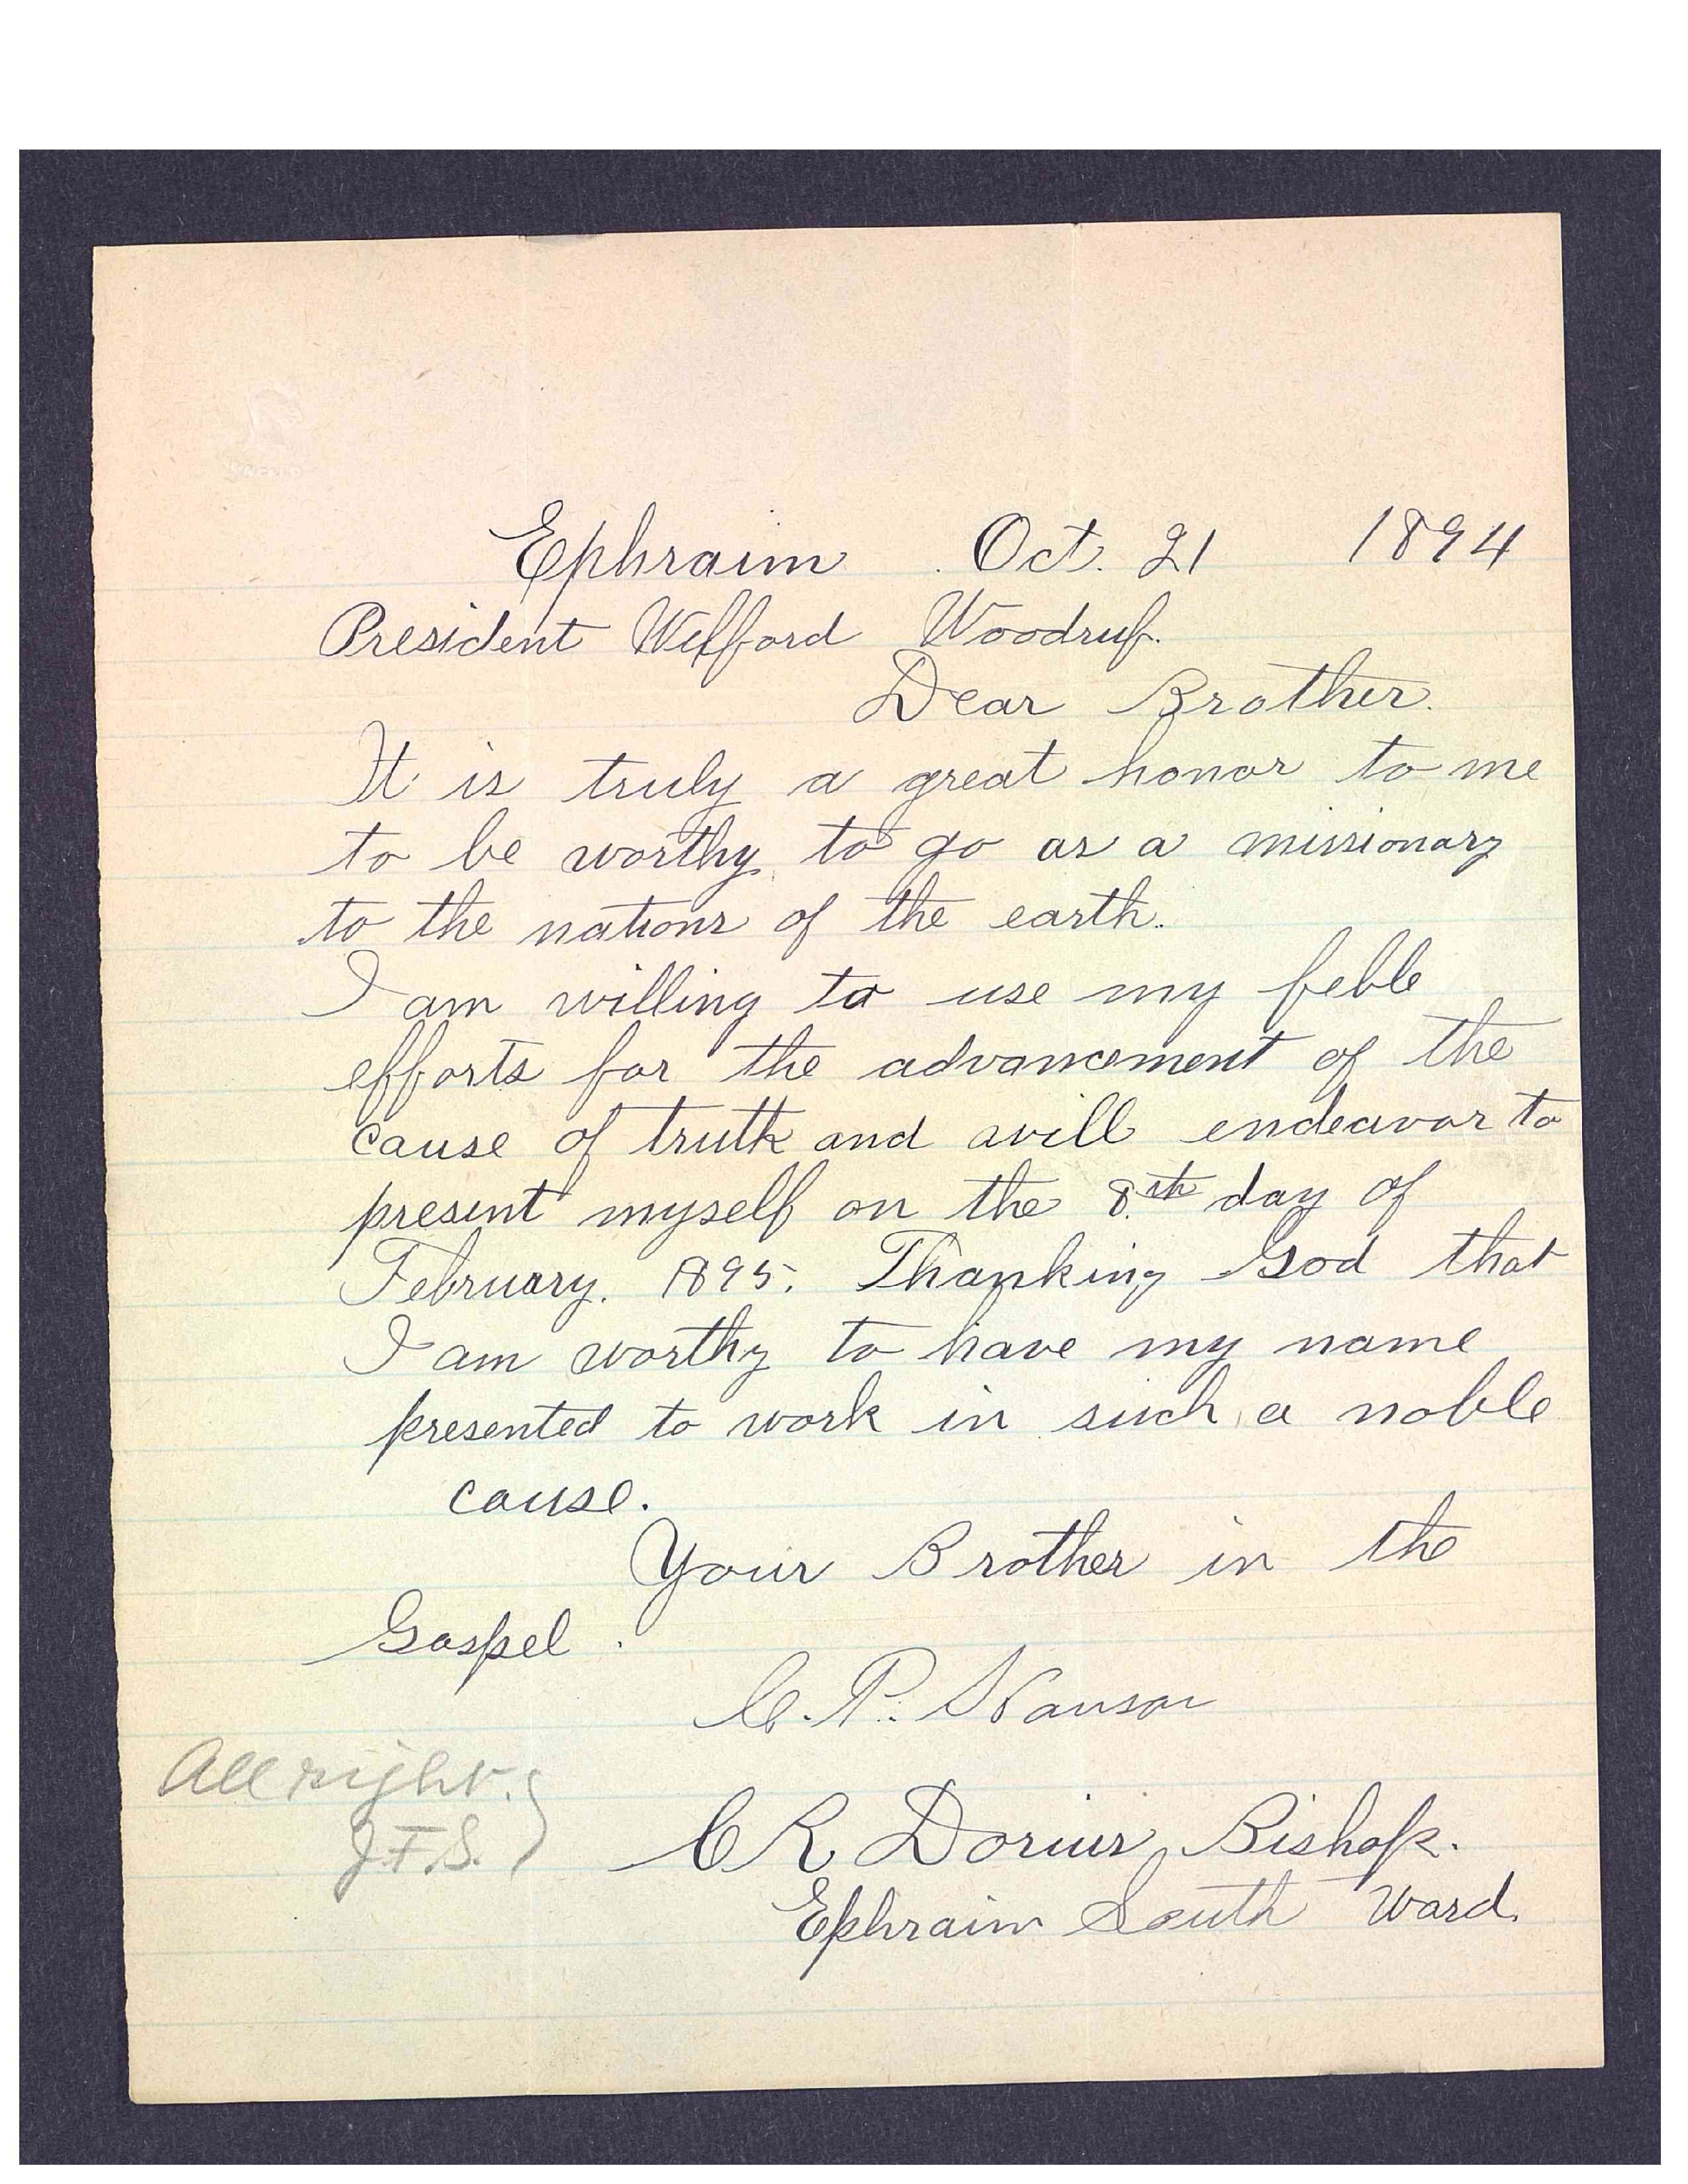 Ephraim Oct. 21 1894
President Wilford Woodruf.
Dear Brother.
It is truly a great honor to me
to be worthy to go as a missionary
to the nations of the earth.
I am willing to use my feble
efforts for the advancement of the
cause of truth and will endeavor to
present myself on the 8th day of
February. 1895. Thanking God that
I am worthy to have my name
presented to work in such a noble
cause.
Your Brother in the
Gospel.
C. P. Hanson
All right.
J.F.S.
C R Dorius, Bishop.
Ephraim South Ward.